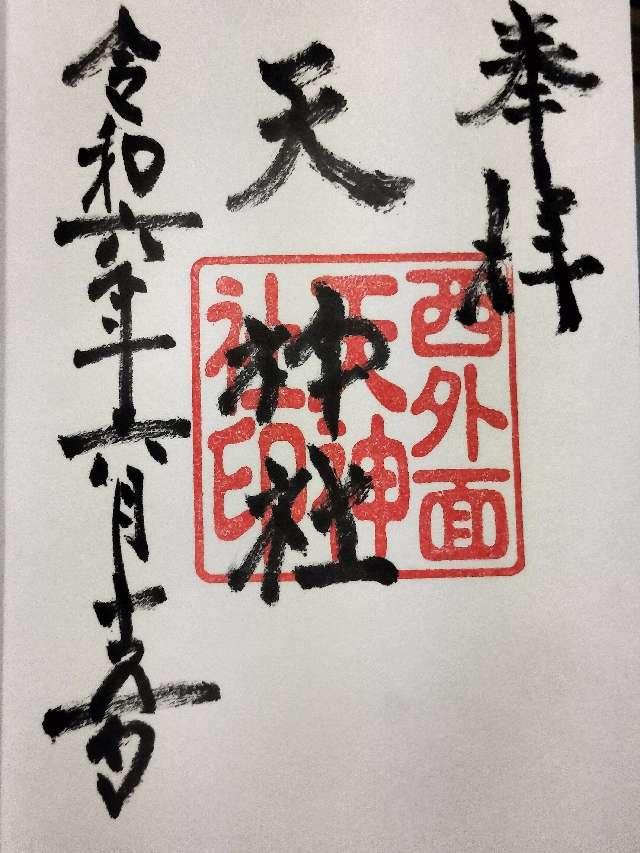 奉拝
天神社
令和六年六月十五日
西外面
天神
社印